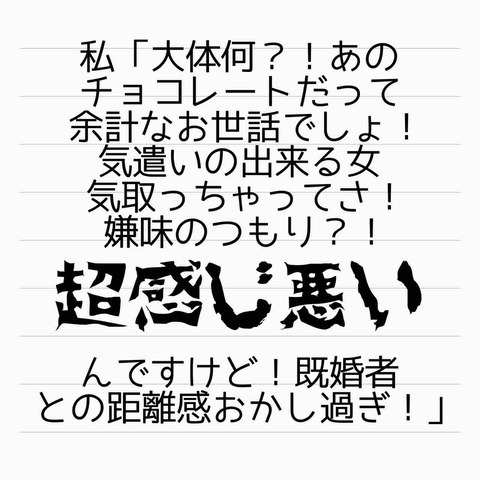 私「大体何？！あの
チョコレートだって
余計なお世話でしょ！
気遣いの出来る女
気取っちゃってさ！
嫌味のつもり？！
超感じ悪い
んですけど！既婚者
との距離感おかし過ぎ！」